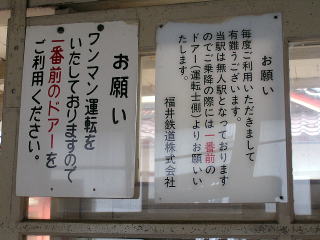 お願い
毎度ご利用いただきまして
有難うございます。
当駅は無人駅となっております
のでご乗降の際には一番前の
ドアー(運転士側)よりお願いい
たします。
福井鉄道株式会社
お願い
ワンマン運転を
いたしておりますので
一番前のドアーを
ご利用ください。